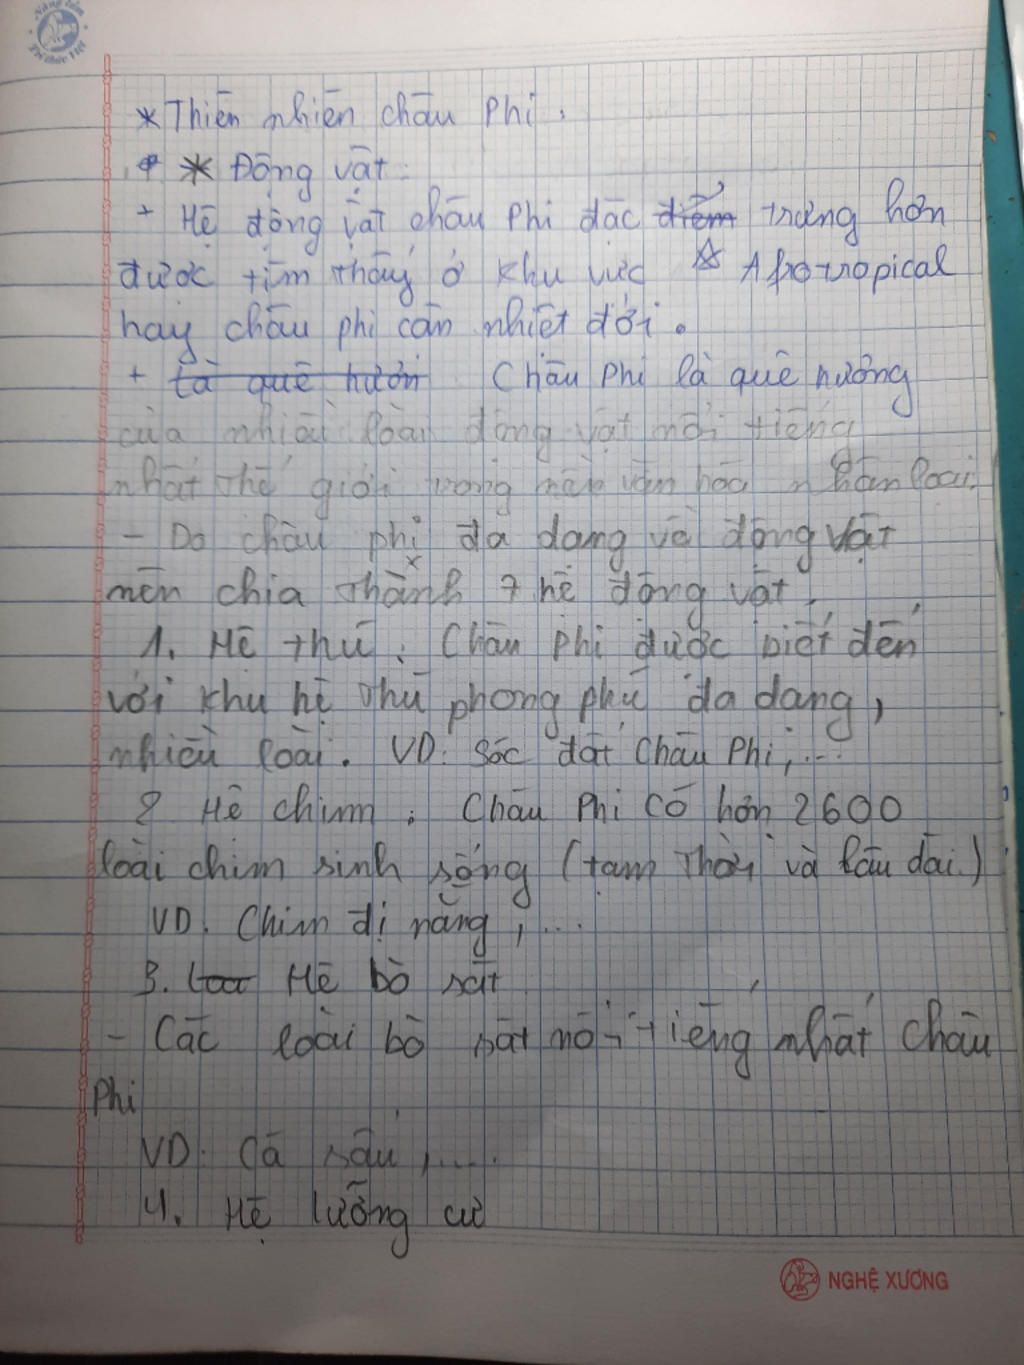 Nâng tầm
Tri thức Việt
* Thiên nhiên châu Phi.
* Động vật:
+ Hệ động vật châu Phi đặc điểm trưng hơn
được tìm thấy ở khu vực Afrotropical
hay châu phi cận nhiệt đới.
+ là quê hươn Châu Phi là quê hương
của nhiều loài động vật nổi tiếng
nhất thế giới trong nền văn hóa nhân loại.
- Do châu phi đa dạng về động vật
nên chia thành 7 hệ động vật.
1. Hệ thú: Châu phi được biết đến
với khu hệ thú phong phú đa dạng,
nhiều loài. VD: Sóc đất Châu Phi,...
2 Hệ chim: Châu Phi có hơn 2600
loài chim sinh sống (tạm thời và lâu dài)
VD: Chim đị nắng,...
3. Hệ bò sát
- Các loài bò sát nổi tiếng nhất châu
Phi
VD: Cá sấu,....
4. Hệ lưỡng cư
NGHỆ XƯƠNG